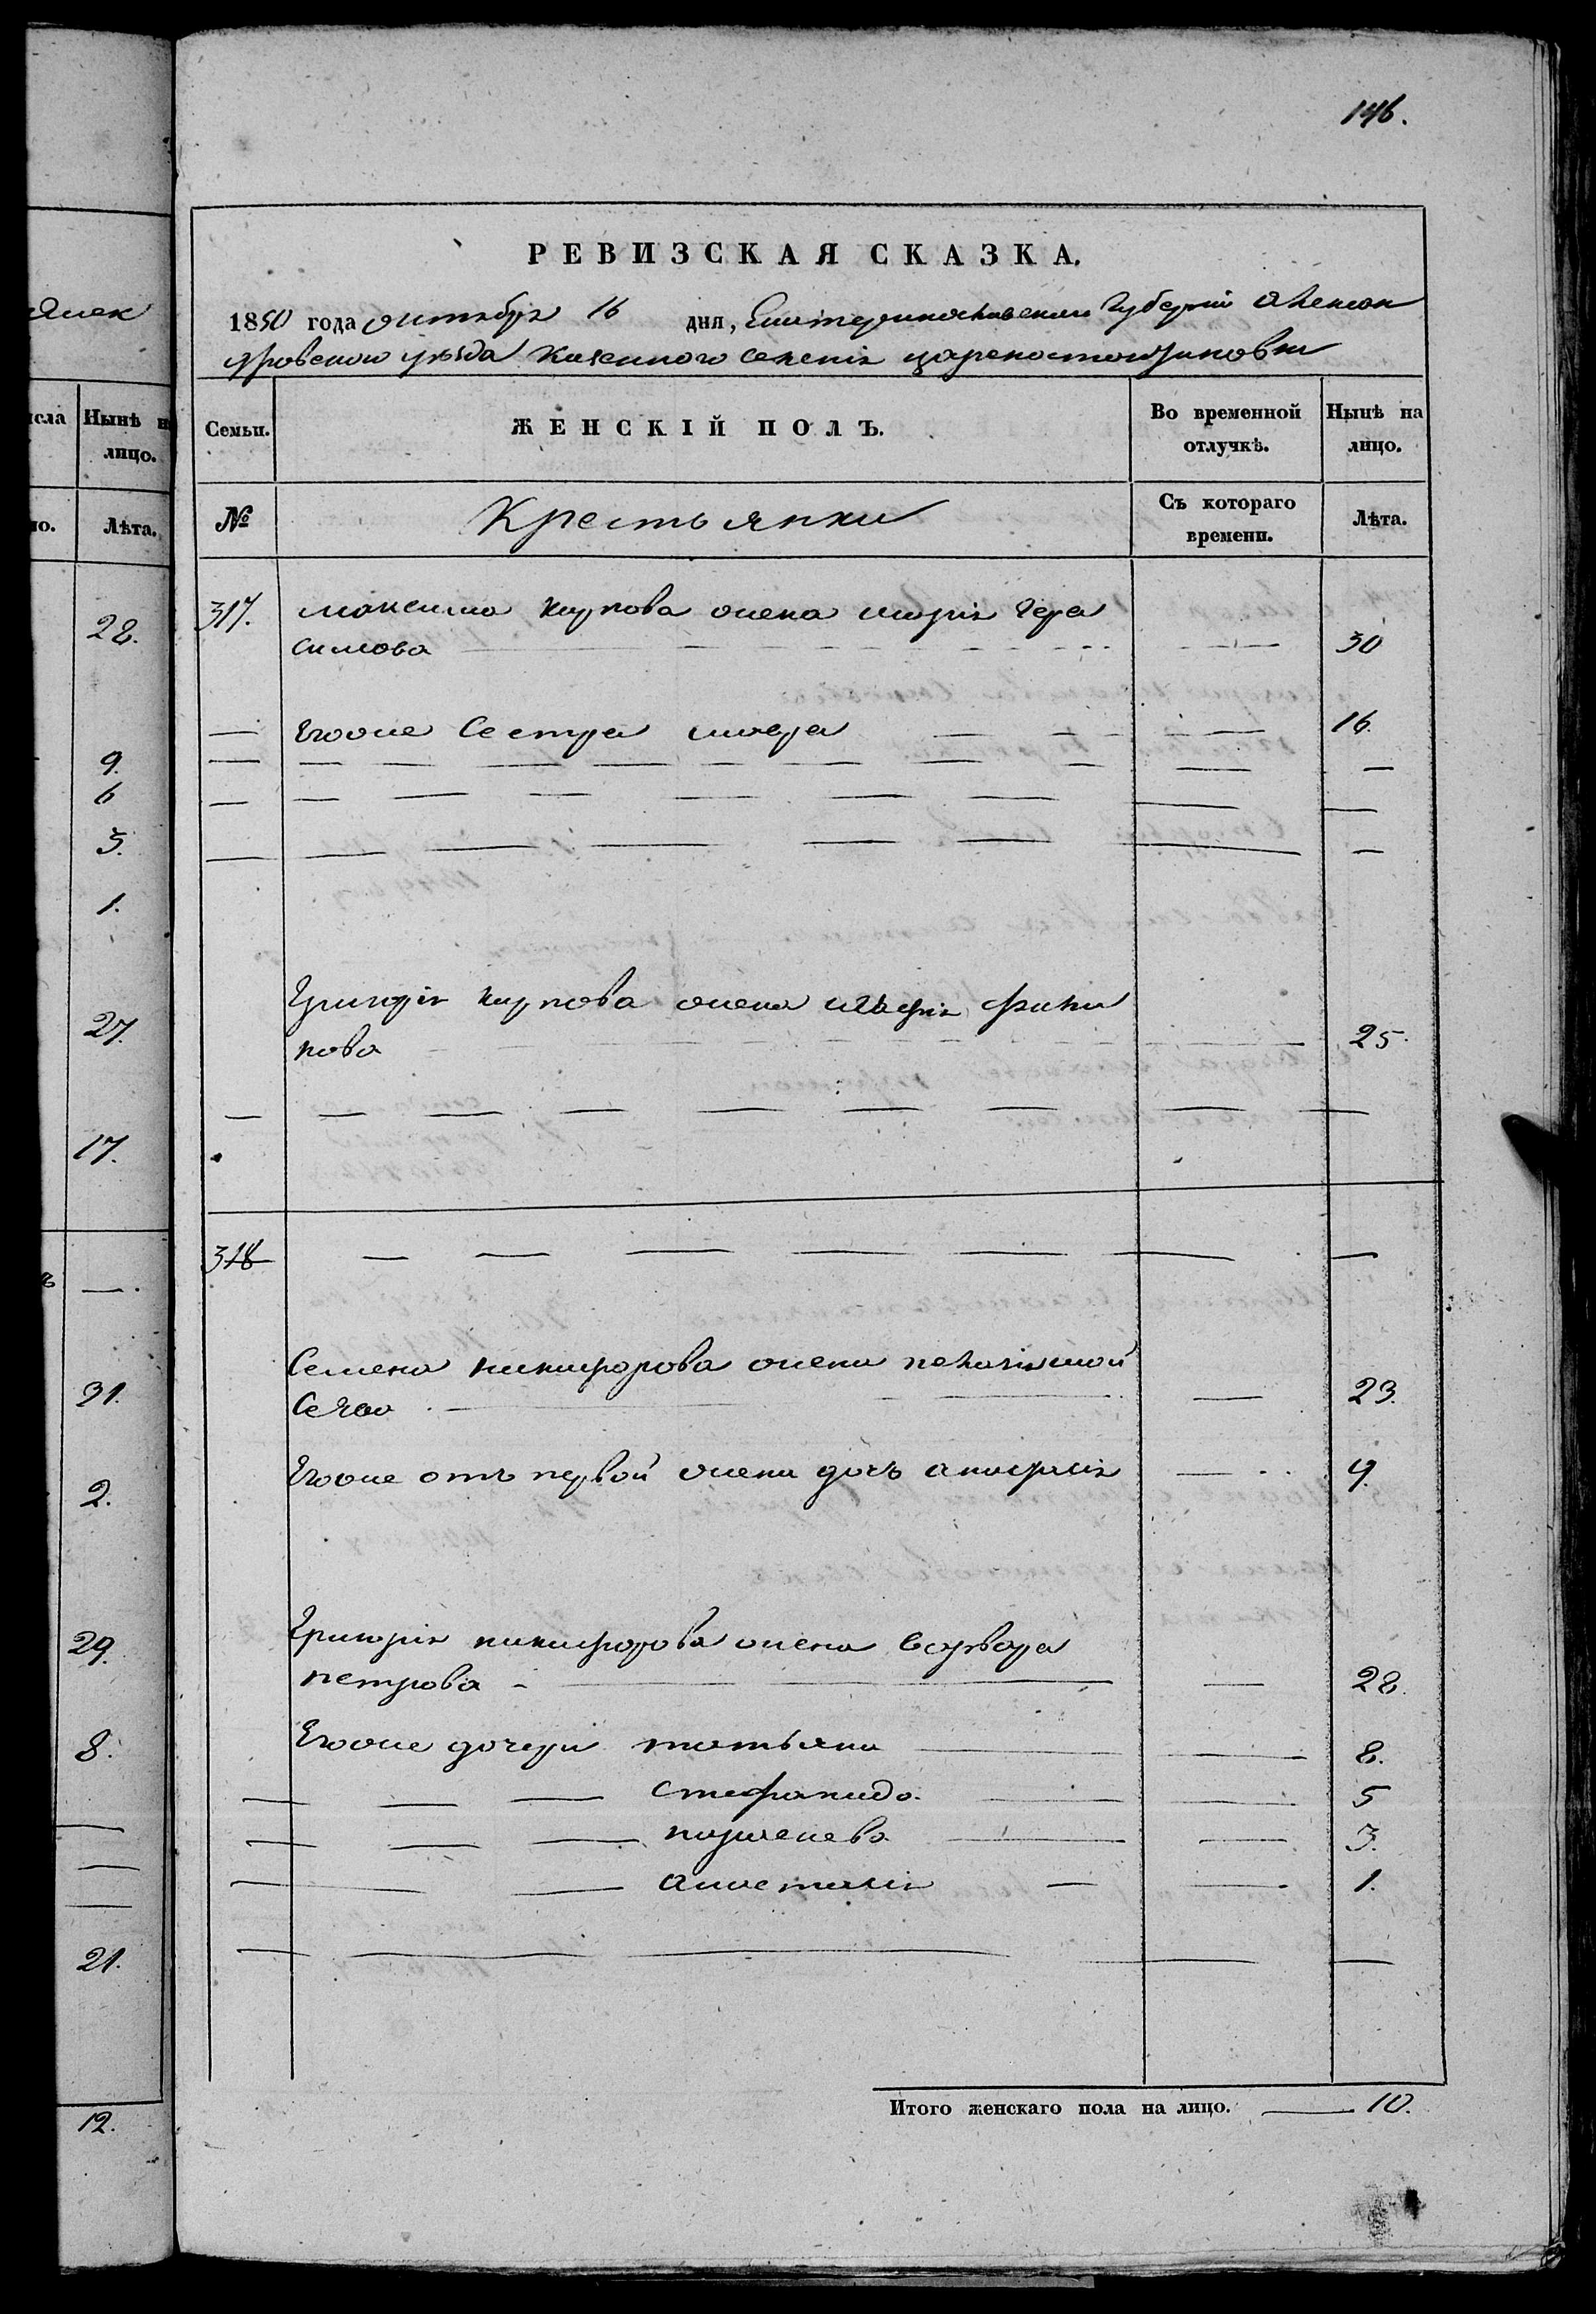 146.
РЕВИЗСКАЯ СКАЗКА.
1850 года октября 16 дня, Екатеринославской Губернии Алексан
дровского уезда казенного селения
Семьи.
ЖЕНСКІЙ ПОЛЪ.
Во временной отлучкѣ.
Нынѣ на лицо.
№
Крестьянки
Съ котораго времени.
Лѣта.
317. Максима Карпова жена Марія Гера
симова 30
Егоже сестра 16.
Григорія Карпова жена
пова 25.
318
Семена Никифорова жена Пелагія Мой
сеева 23.
Егоже отъ первой жены дочь 9.
Григорія Никифорова жена Варвара
Петрова 28.
Егоже дочери Татьяна 8.
Стефанида 5
3.
Анастасія 1.
Итого женскаго пола на лицо. 10.
Нынѣ на
лицо.
Лѣта.
28.
9.
6
3.
1.
27.
17.
31.
2.
29.
8.
21.
12.